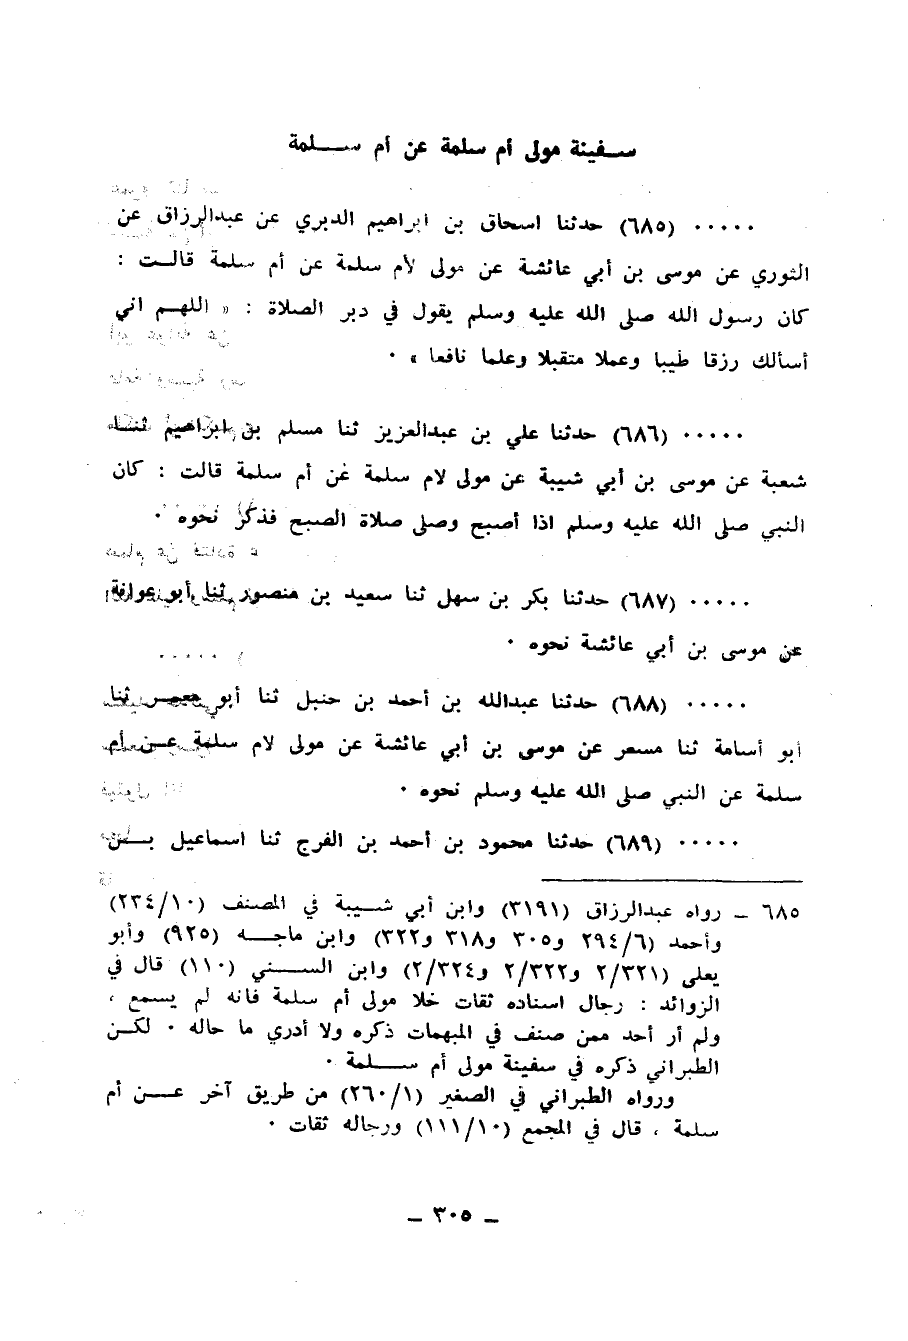 سفينة مولى أم سلمة عن أم سلمة
٠٠٠٠٠ (٦٨٥) حدثنا اسحاق بن ابراهيم الدبري عن عبدالرزاق عن
الثوري عن موسى بن أبي عائشة عن مولى لأم سلمة عن أم سلمة قالت :
كان رسول الله صلى الله عليه وسلم يقول في دبر الصلاة : « اللهم اني
أسألك رزقا طيبا وعملا متقبلا وعلما نافعا » ٠
٠٠٠٠٠ (٦٨٦) حدثنا علي بن عبدالعزيز ثنا مسلم بن ابراهيم ثنا
شعبة عن موسى بن أبي شيبة عن مولى لام سلمة عن أم سلمة قالت : كان
النبي صلى الله عليه وسلم اذا أصبح وصلى صلاة الصبح فذكر نحوه ٠
٠٠٠٠٠ (٦٨٧) حدثنا بكر بن سهل ثنا سعيد بن منصور ثنا أبو عوانة
عن موسى بن أبي عائشة نحوه ٠
٠٠٠٠٠ (٦٨٨) حدثنا عبدالله بن أحمد بن حنبل ثنا أبو معمر ثنا
أبو أسامة ثنا مسعر عن موسى بن أبي عائشة عن مولى لام سلمة عن أم
سلمة عن النبي صلى الله عليه وسلم نحوه ٠
٠٠٠٠٠ (٦٨٩) حدثنا محمود بن أحمد بن الفرج ثنا اسماعيل بن
٦٨٥ ــ رواه عبدالرزاق (٣١٩١) وابن أبي شيبة في المصنف (٢٣٤/١٠)
وأحمد (٢٩٤/٦ و٣٠٥ و٣١٨ و٣٢٢) وابن ماجه (٩٢٥) وأبو
يعلى (٢/٣٢١ و٢/٣٢٢ و٢/٣٢٤) وابن السني (١١٠) قال في
الزوائد : رجال اسناده ثقات خلا مولى أم سلمة فانه لم يسمع ،
ولم أر أحد ممن صنف في المبهمات ذكره ولا أدري ما حاله ٠ لكن
الطبراني ذكره في سفينة مولى أم سلمة ٠
ورواه الطبراني في الصغير (٢٦٠/١) من طريق آخر عن أم
سلمة ، قال في المجمع (١١١/١٠) ورجاله ثقات ٠
ــ ٣٠٥ ــ